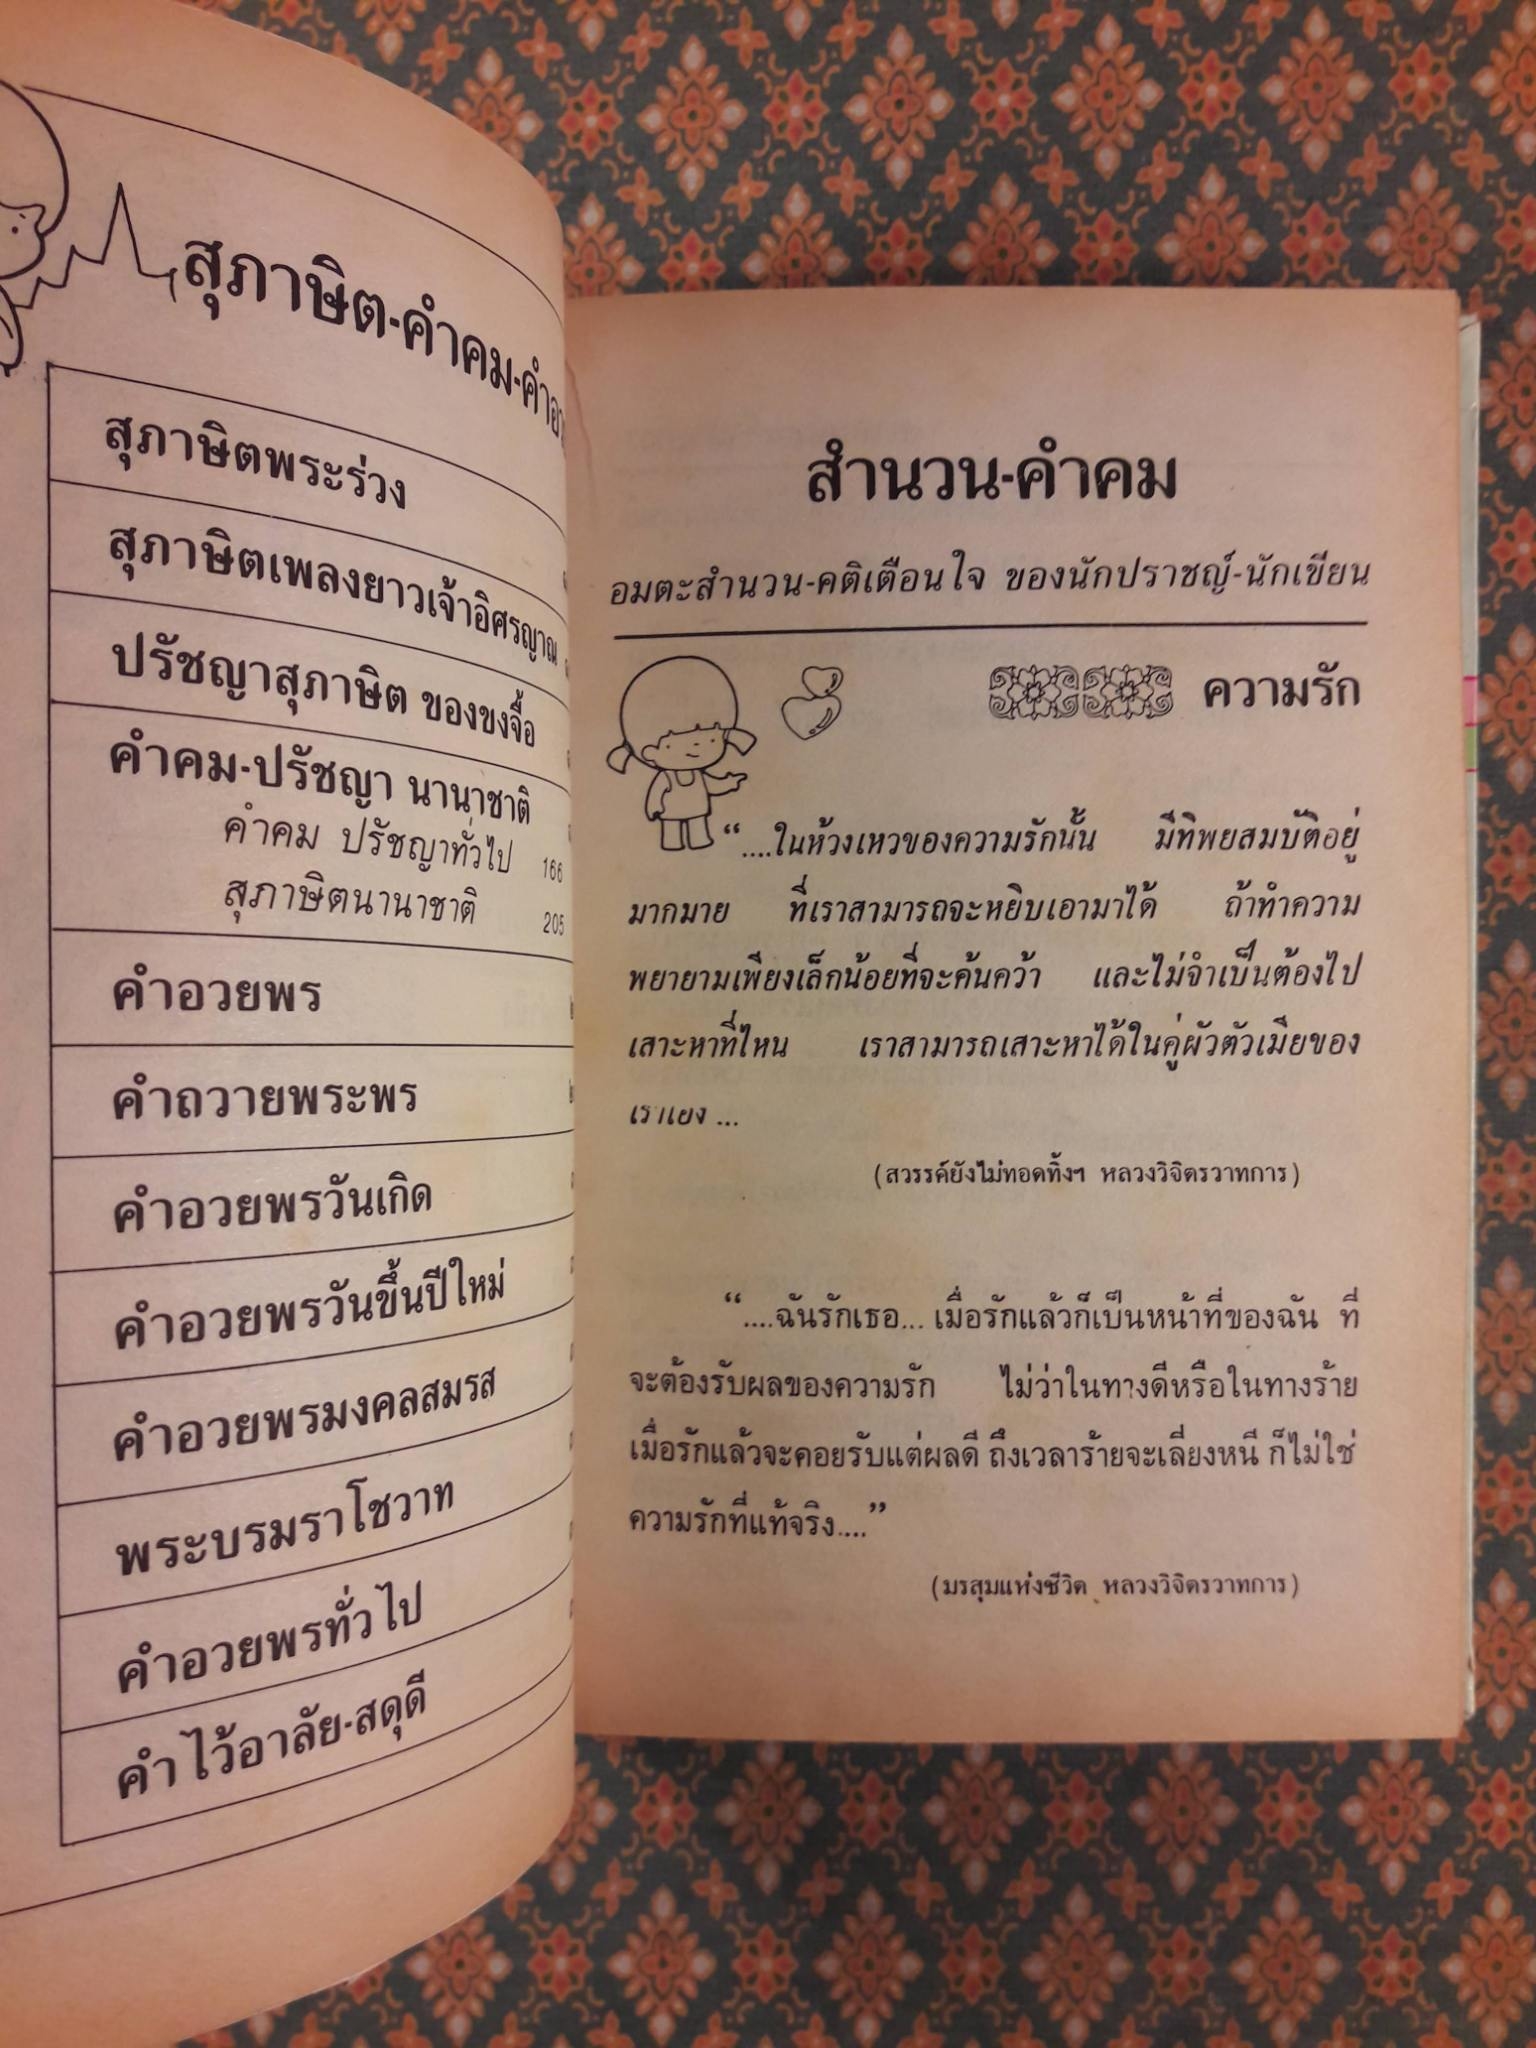 สุภาษิต-คำคม-คำอ
สุภาษิตพระร่วง
สุภาษิตเพลงยาวเจ้าอิศรญาณ
ปรัชญาสุภาษิต ของขงจื้อ
คำคม-ปรัชญา นานาชาติ
คำคม ปรัชญาทั่วไป 166
สุภาษิตนานาชาติ 205
คำอวยพร
คำถวายพระพร
คำอวยพรวันเกิด
คำอวยพรวันขึ้นปีใหม่
คำอวยพรมงคลสมรส
พระบรมราโชวาท
คำอวยพรทั่วไป
คำไว้อาลัย-สดุดี
สำนวน-คำคม
อมตะสำนวน-คติเตือนใจ ของนักปราชญ์-นักเขียน
ความรัก
“....ในห้วงเหวของความรักนั้น มีทิพยสมบัติอยู่
มากมาย ที่เราสามารถจะหยิบเอามาได้ ถ้าทำความ
พยายามเพียงเล็กน้อยที่จะค้นคว้า และไม่จำเป็นต้องไป
เสาะหาที่ไหน เราสามารถเสาะหาได้ในคู่ผัวตัวเมียของ
เราเอง ...
(สวรรค์ยังไม่ทอดทิ้งฯ หลวงวิจิตรวาทการ)
“....ฉันรักเธอ... เมื่อรักแล้วก็เป็นหน้าที่ของฉัน ที่
จะต้องรับผลของความรัก ไม่ว่าในทางดีหรือในทางร้าย
เมื่อรักแล้วจะคอยรับแต่ผลดี ถึงเวลาร้ายจะเลี่ยงหนี ก็ไม่ใช่
ความรักที่แท้จริง....”
(มรสุมแห่งชีวิต หลวงวิจิตรวาทการ)